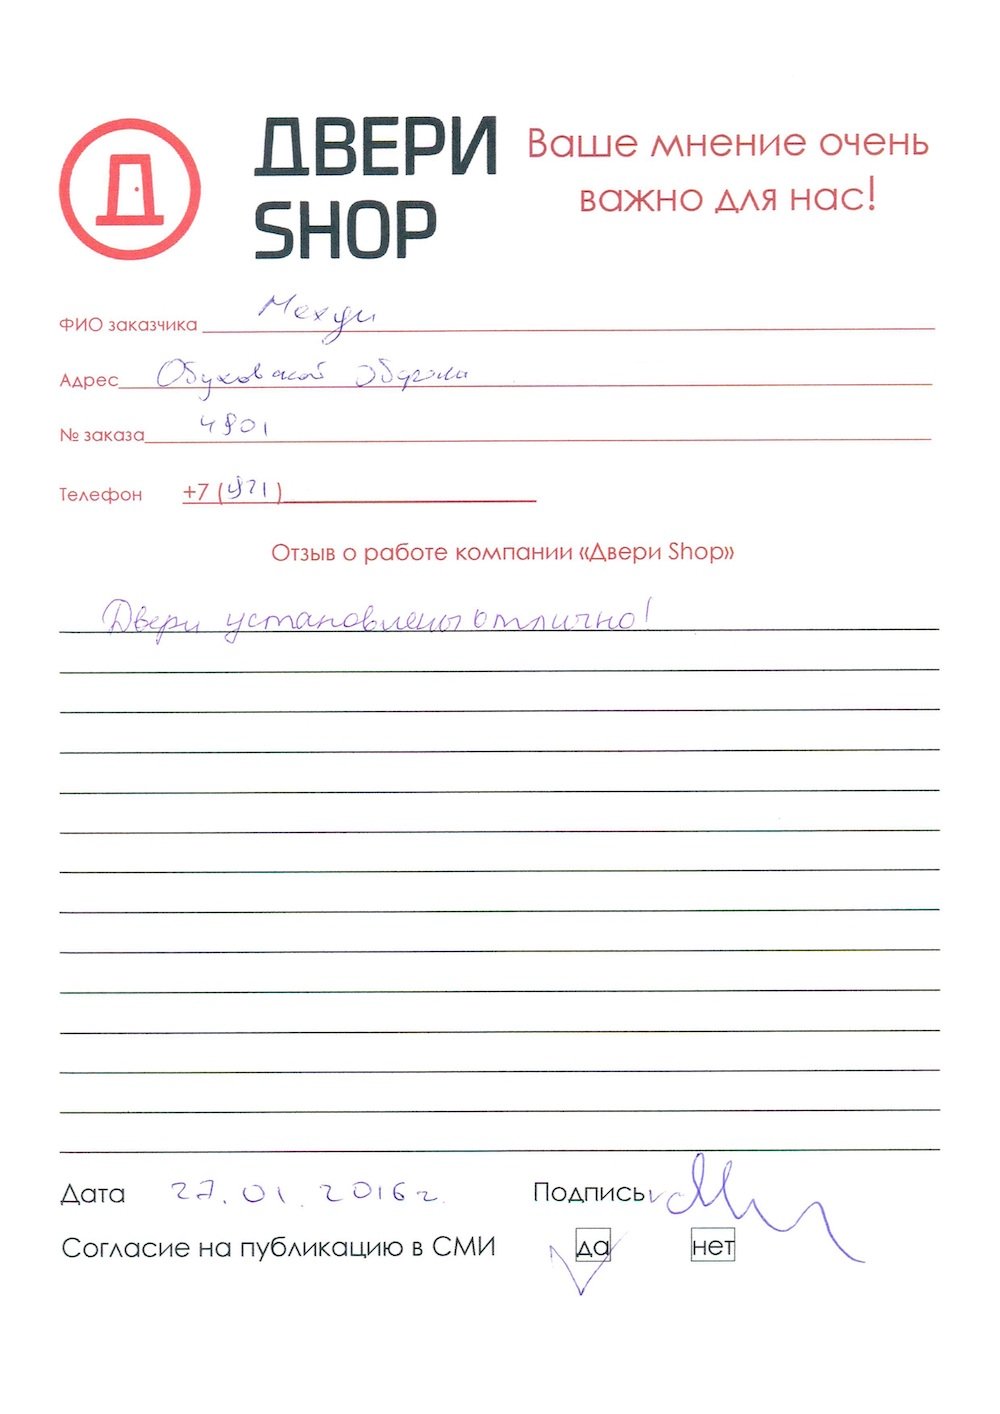 ДВЕРИ
SHOP
Ваше мнение очень
важно для нас!
ФИО заказчика Мехди
Адрес Обуховской обороны
№ заказа 4801
Телефон +7 (921)
Отзыв о работе компании «Двери Shop»
Двери установлены отлично!
Дата 27.01.2016г. Подпись
Согласие на публикацию в СМИ да нет